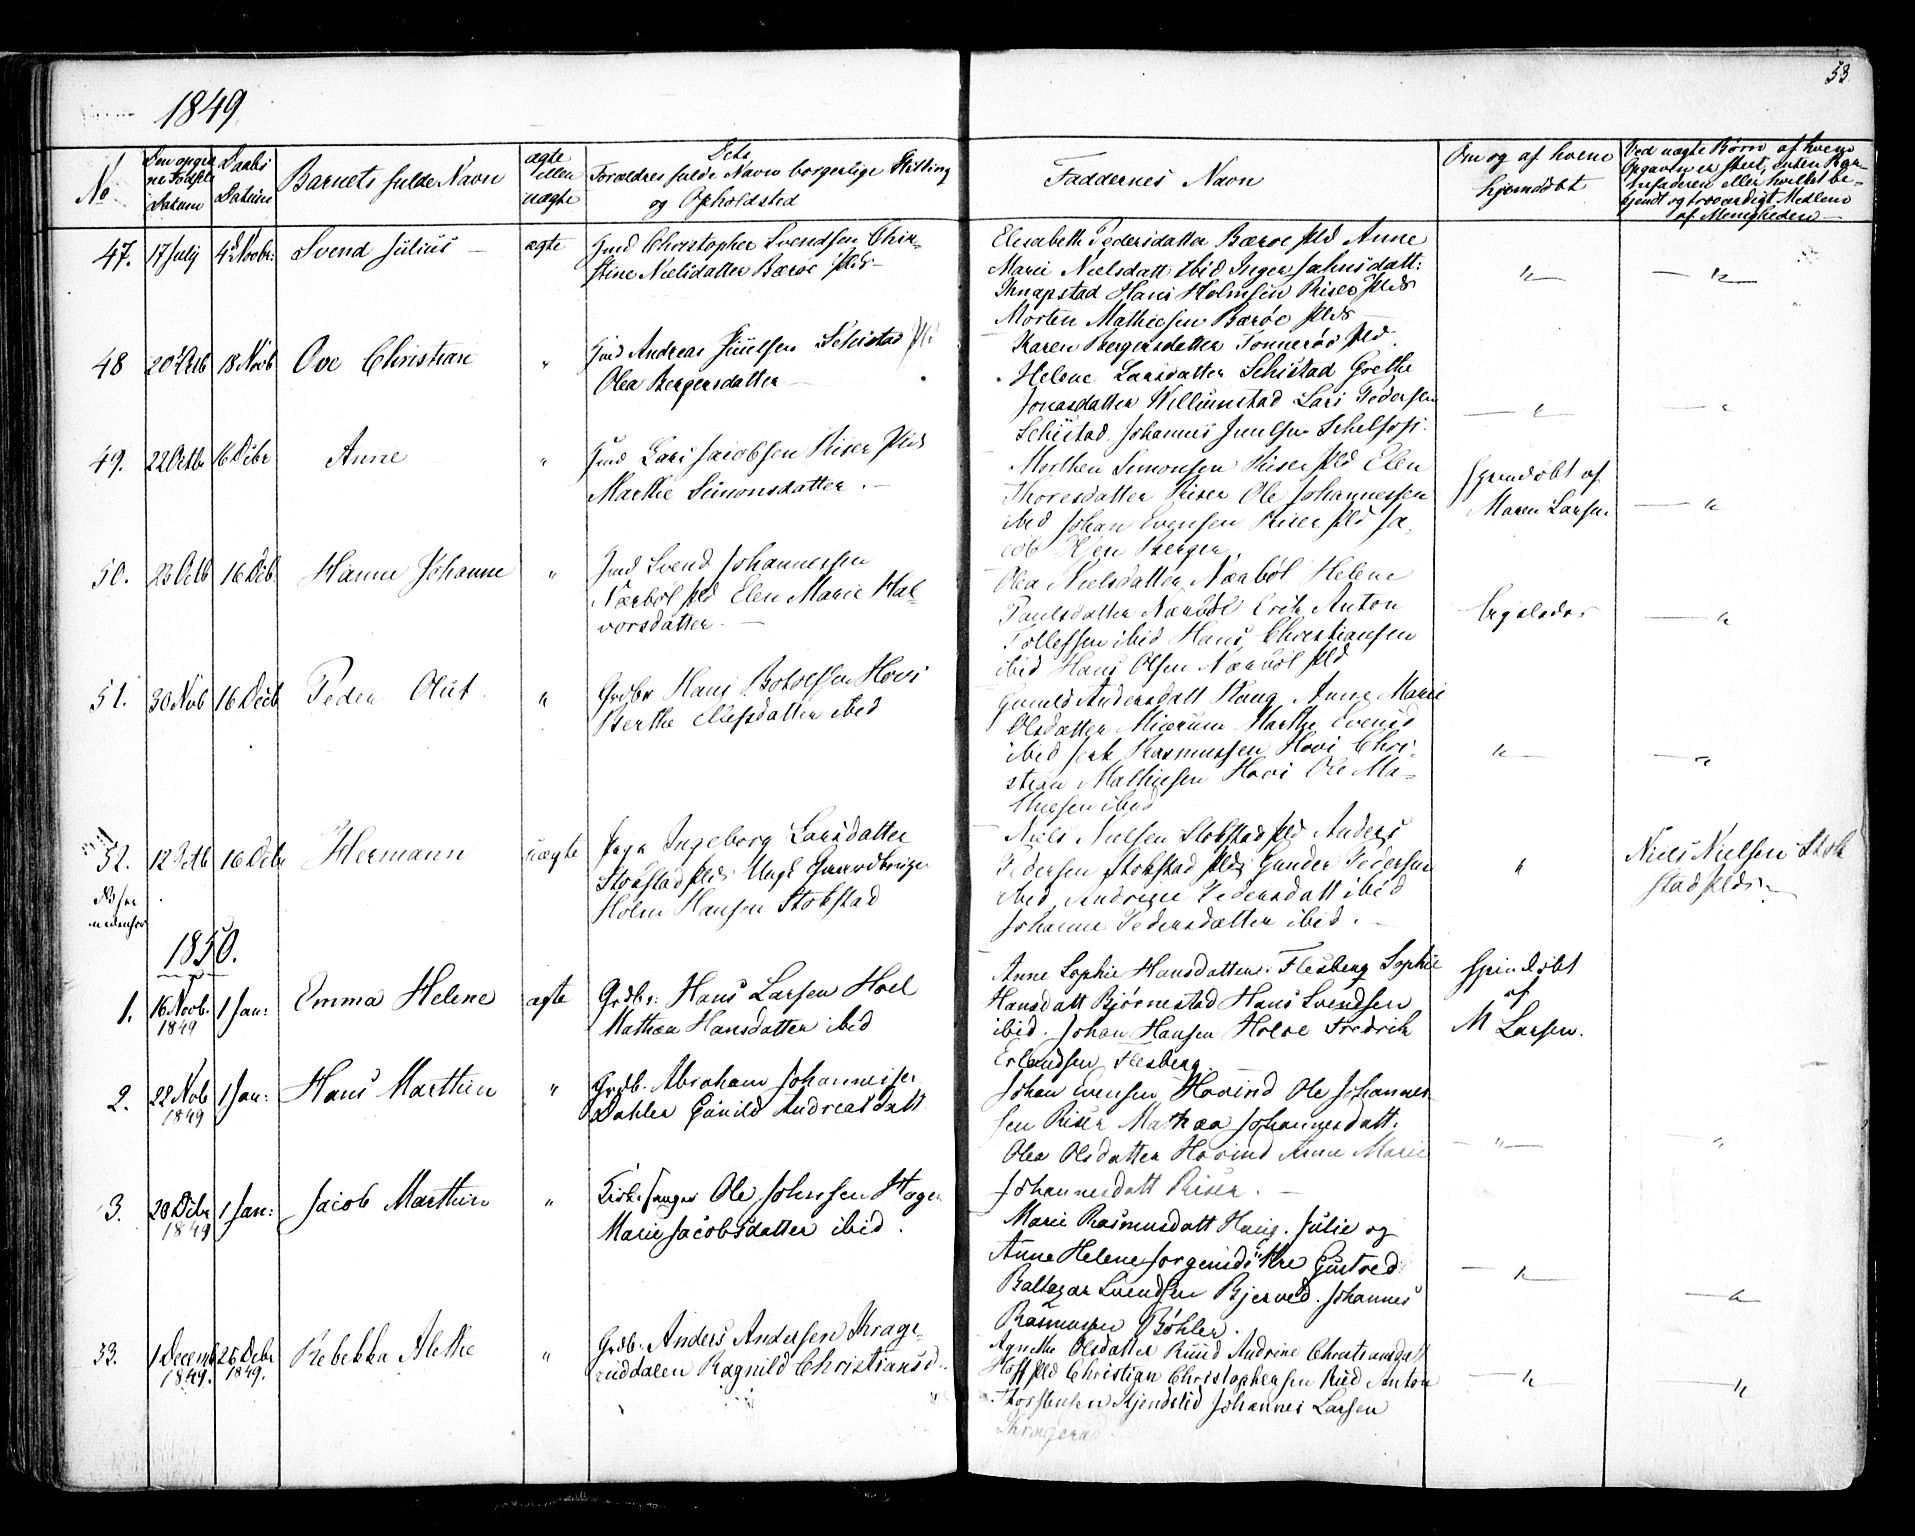 53
1849
No
Den opgivne Fødsels Datum
Daabs Datum
Barnets fulde Navn
ægte eller uægte
Dets
Forældres fulde Navn borgerlige Stilling
og Opholdsted
Faddernes Navn
Om og af hvem
hjemdøbt
Ved uægte Børn af hvem
Opgaven er skeet, enten Bar-
nefaderen eller hvilket be-
kjendt og troværdigt Medlem
af Menigheden
47. 17 July 4d Novbr: Svend Julius ægte
Gmd Christopher Svendsen Chir-
stine Nielsdatter Bæroe Plds
Elesabeth Pedersdatter Bæroe Pld Anne
Marie Nielsdatt ibid Inger Jahnsdatt:
Knapstad Hans Holmsen Riser Plds
Morten Mathiesen Bæroe Plds
48 18 Novb Ove Christian "
Gmd Andreas Juulsen Schistad
Olea Bergersdatter
Karen Bergersdatter Tonnerøs Pld.
Helene Larsdatter Schistad Grethe
Jonasdatter Willumstad Lars Pedersen
Schistad, Johannes Juulsen
49. 22 Octbr 16 Debr Anne "
Gmd Lars Jacobsen Riser Plds
Marthe Simonsdatter.
Morthen Simonsen Riser Pld Elen
Thoresdatter Riser Ole Johannessen
ibid Johan Evensen Riser Pld Ja-
cob Berger
Hjemdøbt af
Maren Larsen
50. 23 Octb 16 Deb Hanne Johanne "
Gmd Svend Johannessen
Nærbøl Pld Elen Marie Hal-
vorsdatter
Olea Nielsdatter Nærbøl Helene
Paulsdatter Nærbøl Erik Anton
Tollefsen ibid Hans Christiansen
ibid Hans Olsen Nærbøl Pld
51. 30 Nob 16 Decb Peder Olut "
Grdbr Hans Botolfsen Hovi
Berthe Ellefsdatter ibid
Gunild Andersdatt Haug Anne Marie
Olsdatter Marthe Evensd
ibid Rasmussen Hovi Chri-
stian Mathiesen Hovi Ole Ma-
thiesen ibid
52. 12 Octb 16 Debr Hermann uægte
Pige Ingeborg Larsdatter
Stokstad Plds Ungk
Holm Hansen Stokstad
Niels Nielsen Stokstad Pld Anders
Pedersen Stokstad Plds Gunder Pedersen
ibid Andrine Pedersdatt ibid
Johanne Pedersdatter ibid.
Niels Nielsen Stok
stad Plds
1850.
1. 16 Novb. 1849 1 Jan: Emma Helene ægte
Grdbr: Hans Larsen Hoel
Mathea Hansdatter ibid
Anne Sophie Hansdatter Flesberg Sophie
Hansdatt Bjørnestad Hans Svendsen
ibid. Johan Hansen Holoe Fredrik
Erlandsen Flesberg
Hjemdøbt
af
M Larsen.
2. 22 Nob 1849 1 Jan: Hans Marthin "
Grdb. Abraham Johannessen
Dahler Gunild Andreasdatt
Johan Evensen Hovind Ole Johannes
sen Riser Mathea Johannesdatt:
Olea Olsdatter Hovind Anne Marie
Johannesdatt Riser.
3. 20 Debr 1849 1 Jan: Jacob Marthin "
Kirkesanger Ole Johnsen Hagen
Marie Jacobsdatter ibid.
Marie Rasmusdatt Haug. Julie og
Anne Helene Jørgensd
Baltazar Svendsen Bjerved. Johannes
Rasmussen Bøhler.
53. 1 Decemb 1849. 26 Debr 1849. Rebekka Alethe "
Grdb: Anders Andersen Krage-
ruddalen Ragnild Christiansd.
Agnethe Olsdatter Ruud Andrine Christiansdatt
Hoff Pld Christian Christophersen Rud Anton
Thorstensen Kjendstid Johannes Larsen
Kragerud